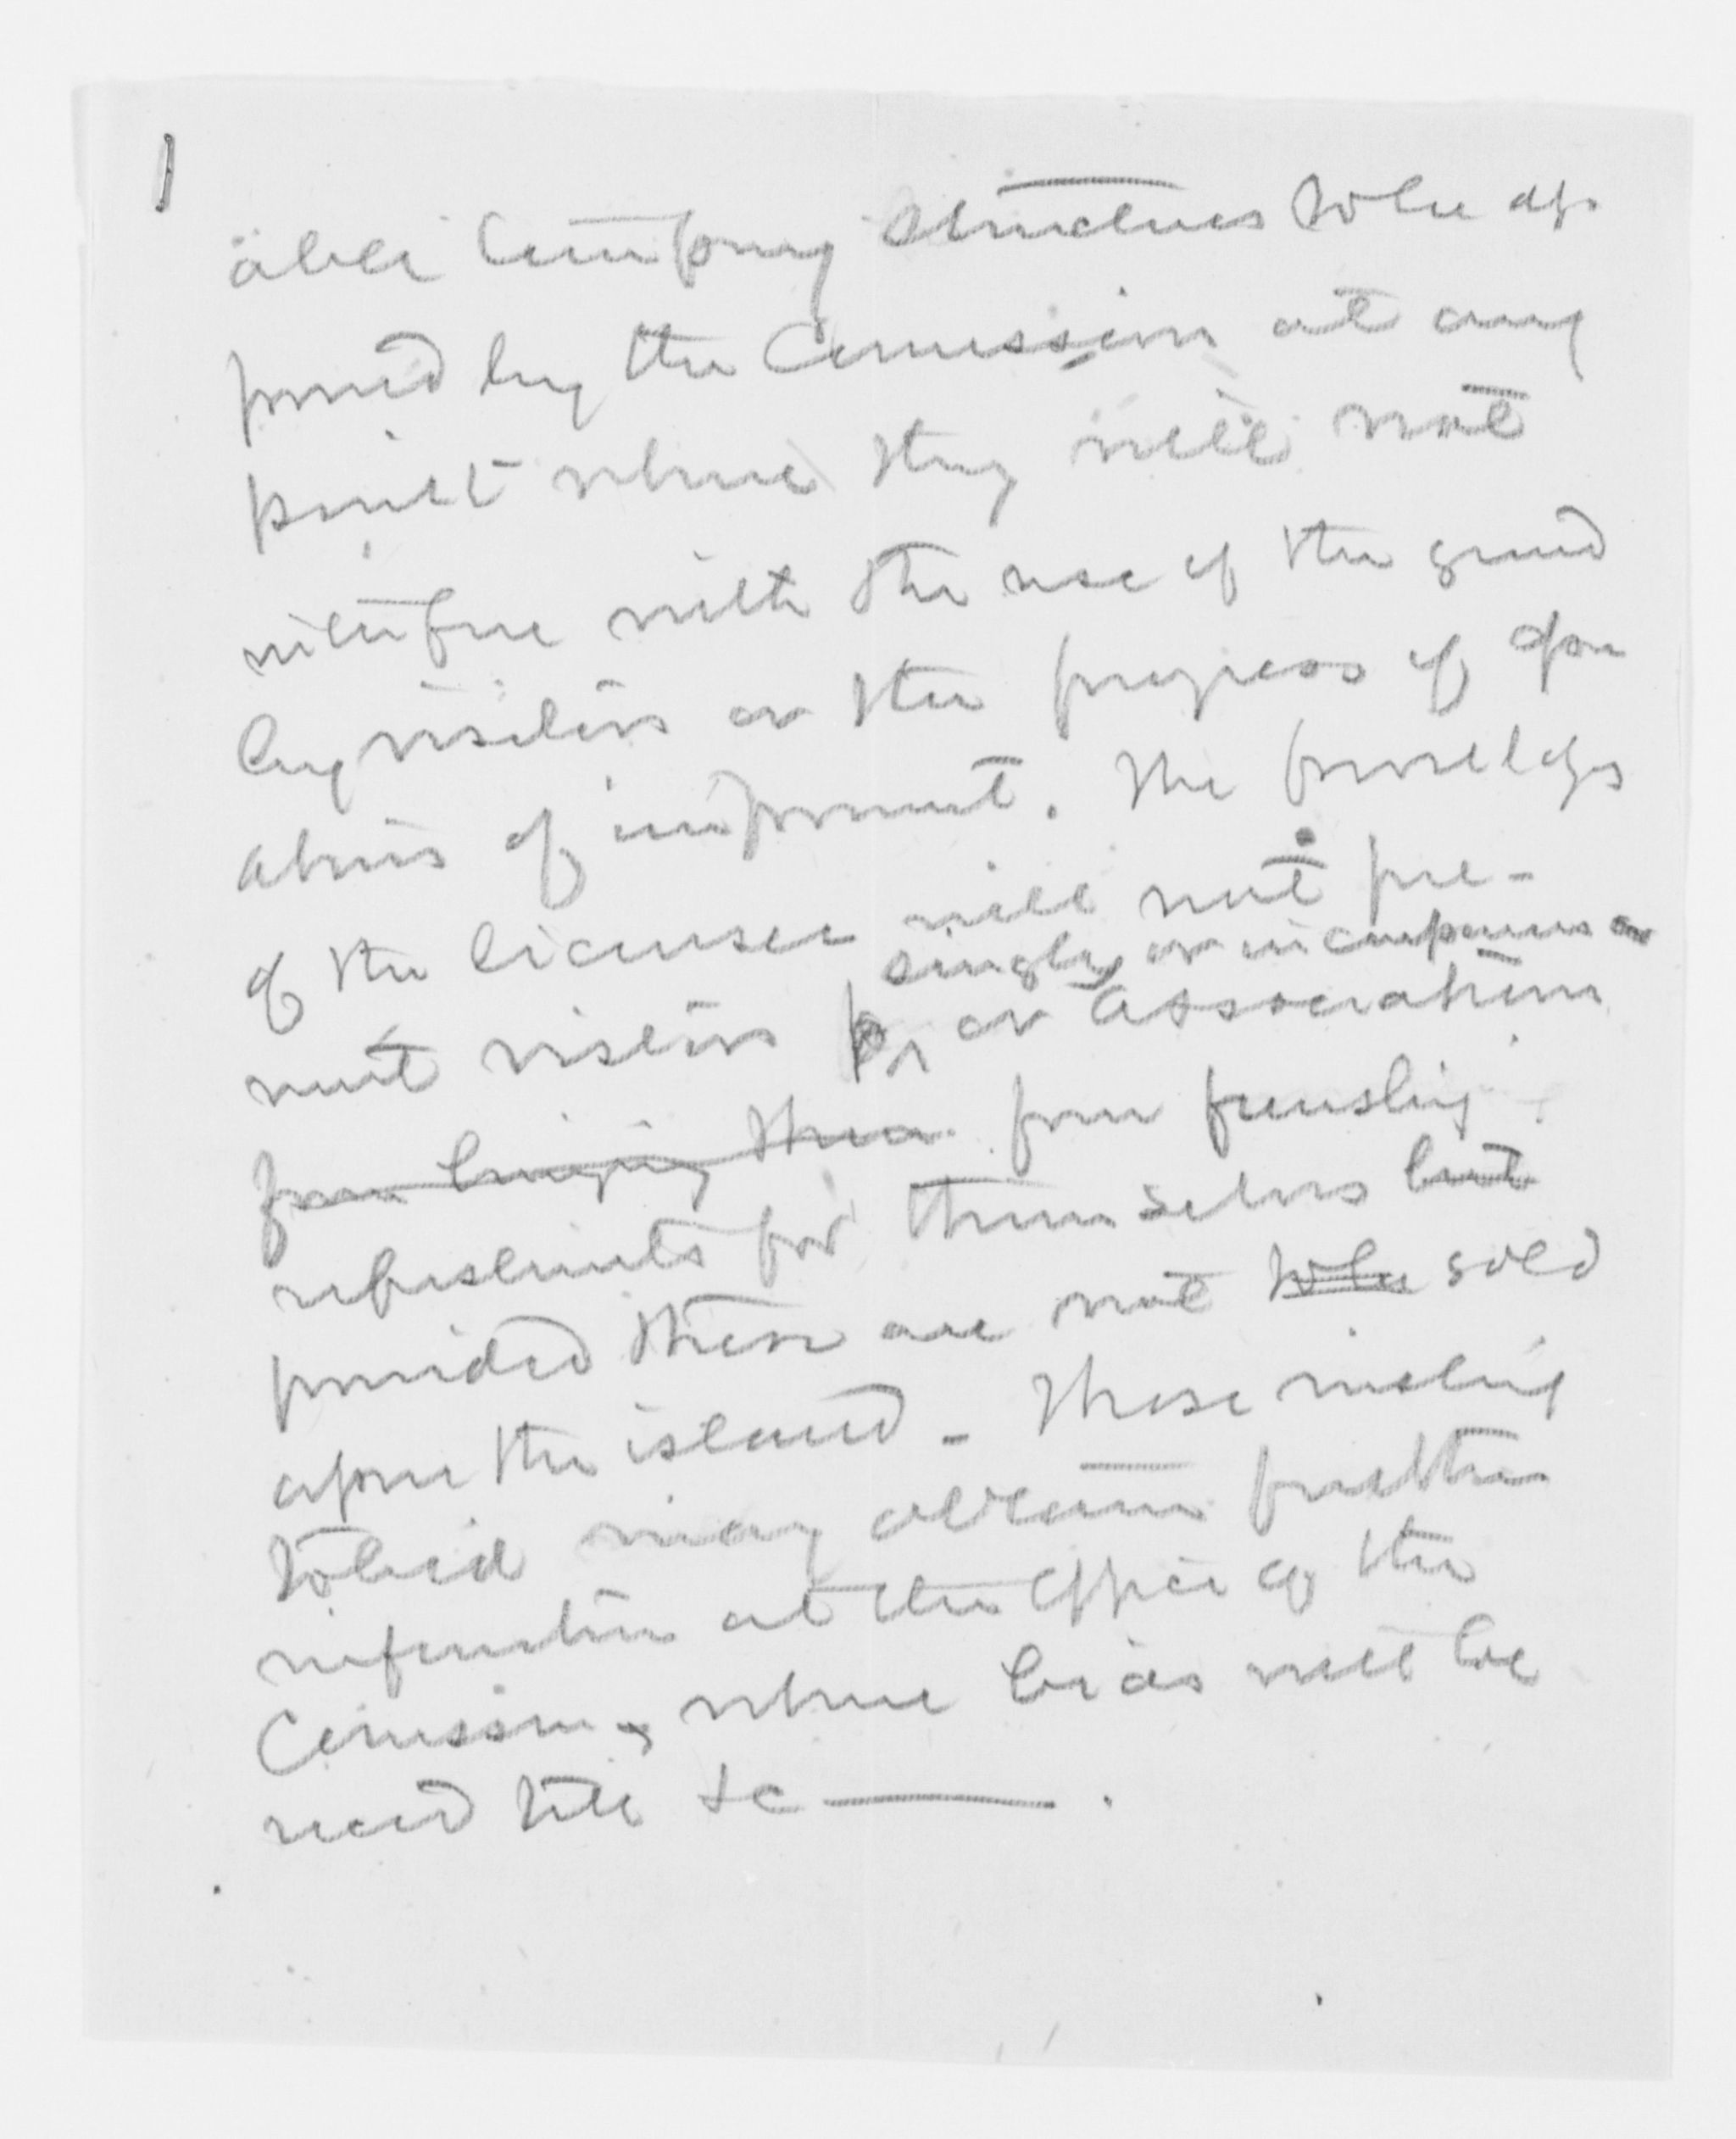 able temporary structures to be ap
proved by the Commission at any
point where they will not
interfere with the use of the ground
by visitors or the progress of oper
ations of improvement. The privileges
of the licensee will not pre-
singly or in companies or
vent visitors or associations
from bringing them from furnishing
refreshments for themselves but
provided these are not to be sold
upon the island - Those wishing
to bid may obtain further
information at the office of the
Commission, where bids will be
received till &c ——— .